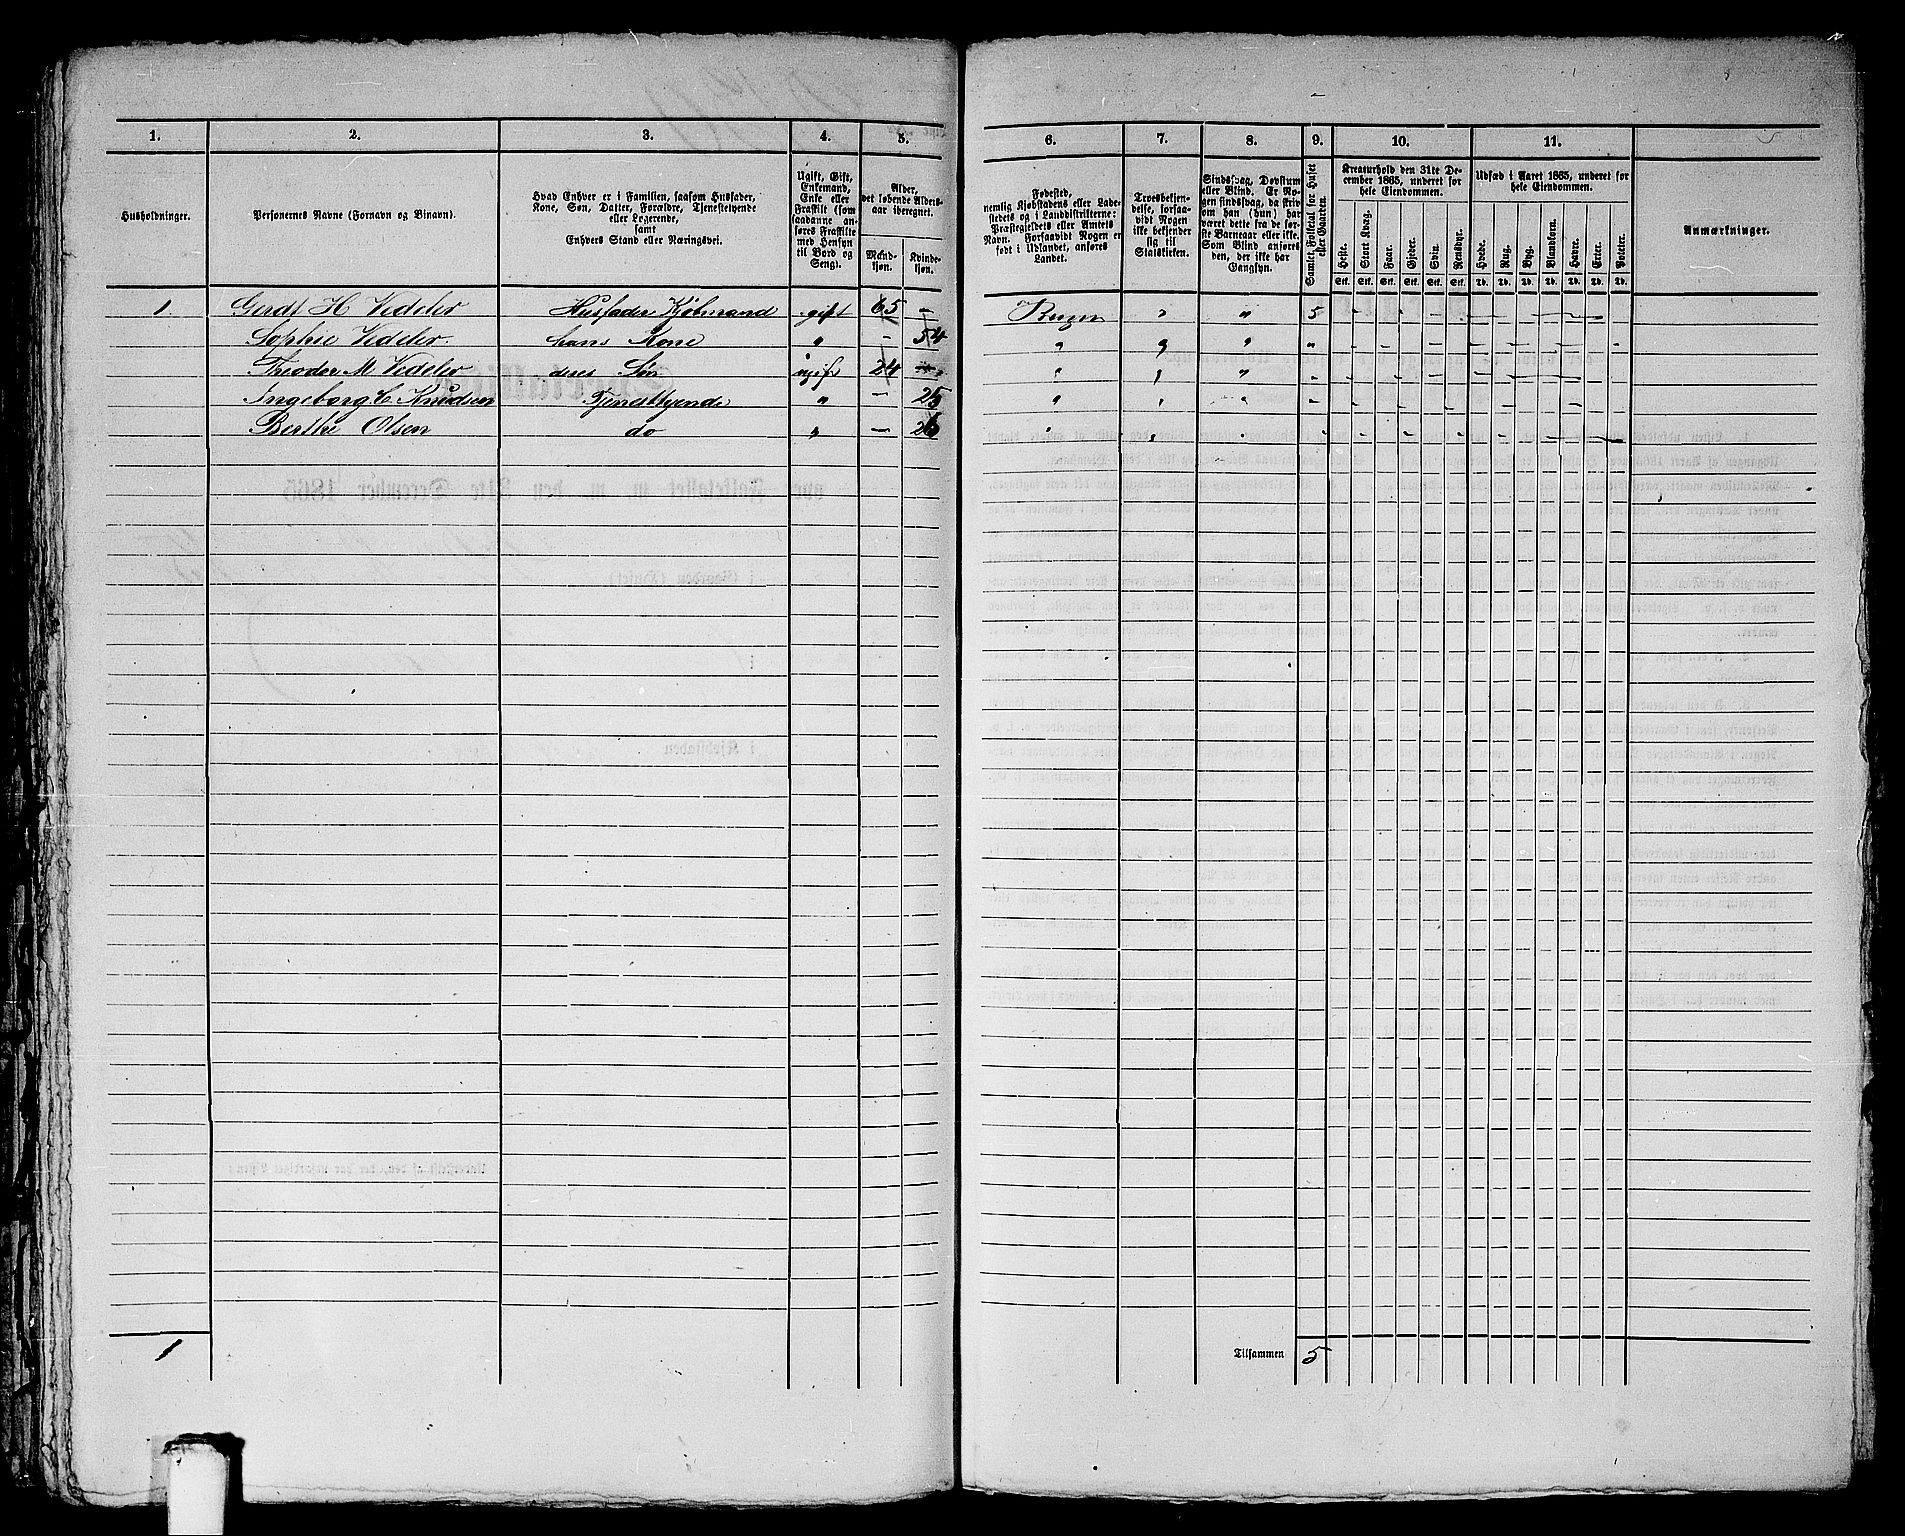 1. 2. 3. 4. 5.
Husholdninger.
Personernes Navne (Fornavn og Binavn).
Hvad Enhver er i Familien, saasom Husfader,
Kone, Søn, Datter, Forældre, Tjenestetyende
eller Logerende,
samt
Enhvers Stand eller Næringsvei.
Ugift, Gift,
Enkemand,
Enke eller
Fraskilt (som
saadanne an-
føres Fraskilte
med Hensyn
til Bord og
Seng).
Alder,
det løbende Alders-
aar iberegnet.
Mand-
kjøn.
Kvinde-
kjøn.
1. Gerdt H Vedeler Husfader Kjøbmand gift 65 –
Sophie Vedeler hans Kone " – 54
Theodor M Vedeler deres Søn ugift 24
Ingeborg C Knudsen Tjenesttyende " – 25
Berthe Olsen do " – 26
1
6. 7. 8. 9. 10. 11.
Fødested,
nemlig Kjøbstadens eller Lade-
stedets og i Landdistrikterne:
Præstegjeldets eller Amtets
Navn. Forsaavidt Nogen er
født i Udlandet, anføres
Landet.
Troesbekjen-
delse, forsaa-
vidt Nogen
ikke bekjender
sig til
Statskirken.
Sindssvag, Døvstum
eller Blind. Er No-
gen sindssvag, da skriv
om han (hun) har
været dette fra de før-
ste Barneaar eller ikke.
Som Blind anføres
den, der ikke har
Gangsyn.
Samlet Folketal for Huset
eller Gaarden.
Kreaturhold den 31te De-
cember 1865, underet for
hele Eiendommen.
Heste. Stort Kvæg. Faar. Gjeder. Svin. Rensdyr.
Stk. Stk. Stk. Stk. Stk. Stk.
Udsæd i Aaret 1865, underet for
hele Eiendommen.
Hvede. Rug. Byg. Blandkorn. Havre. Erter. Poteter.
Td. Td. Td. Td. Td. Td. Td.
Anmærkninger.
Bergen " " 5
" " " "
" " "
" " "
" "
Tilsammen 5